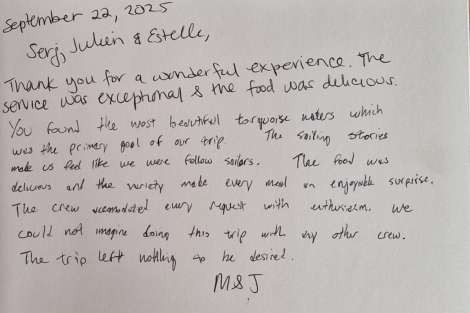 September 22, 2025
Serj, Julien & Estelle,
Thank you for a wonderful experience. The
service was exceptional & the food was delicious.
You found the most beautiful torquoise waters which
was the primary goal of our trip. The sailing stories
made us feel like we were fellow sailors. The food was
delicious and the variety make every meal an enjoyable surprise.
The crew accomodated every request with enthusiasm. We
could not imagine doing this trip with any other crew.
The trip left nothing to be desired.
M & J